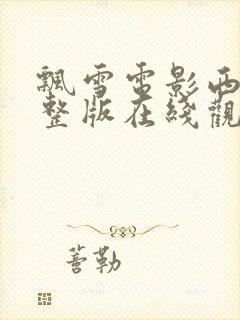 飄雪電影西
整版在綫觀
蓍勒